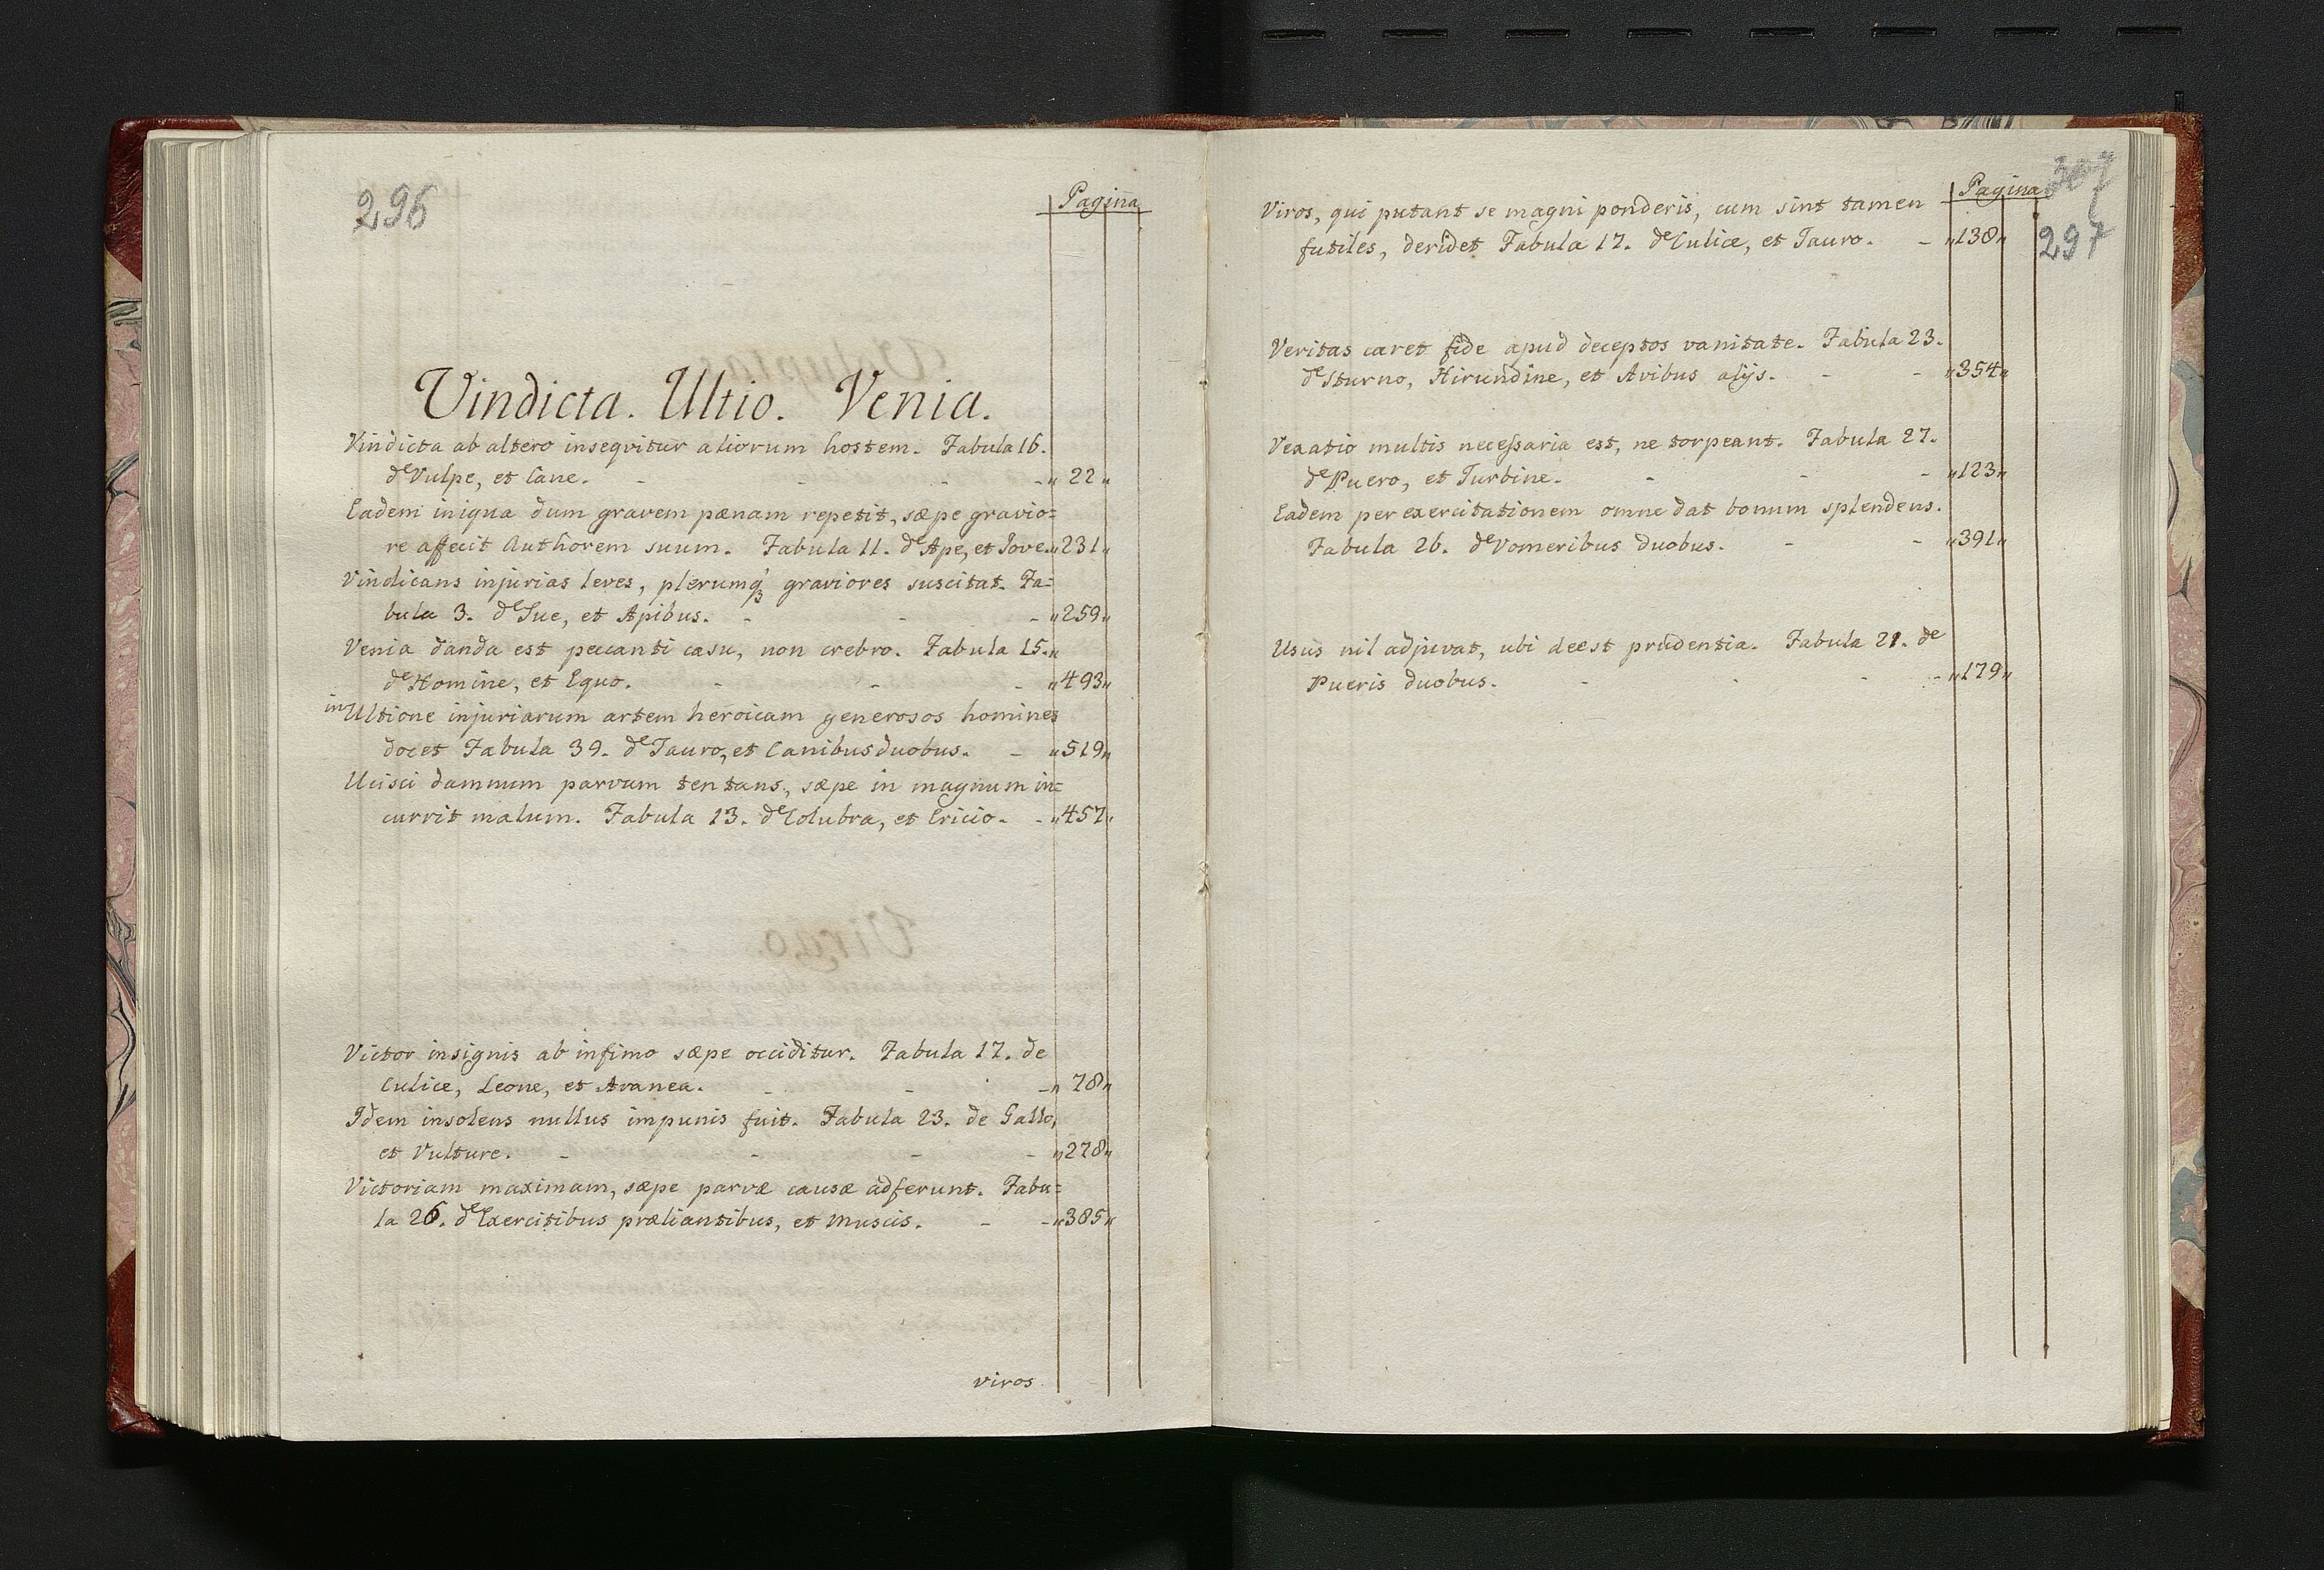 296
Pagina
Vindicta. Ultio. Venia.
Vindicta ab altero inseqvitur aliorum hostem. Fabula 16.
de Vulpe, et Cane. - - - - „ 22 „
Eadem iniqua dum gravem pænam repetit, sæpe gravio=
re affecit Authorem suum. Fabula 11. de Ape, et Jove. „ 231 „
Vindicans injurias leves, plerumqꝫ graviores suscitat. Fa=
bula 3. de Sue, et Apibus. - - - „ 259 „
Venia danda est peccanti casu, non crebro. Fabula 15. „
de Homine, et Equo. - - - „ 493 „
in Ultione injuriarum artem heroicam generosos homines
docet Fabula 39. de Tauro, et Canibus duobus. - „ 519 „
Ulcisci damnum parvum tentans, sæpe in magnum in=
currit malum. Fabula 13. de Colubra, et Ericio. - „ 457 „
Victor insignis ab infimo sæpe occiditur. Fabula 17. de
Culice, Leone, et Aranea. - - - „ 78 „
Idem insolens nullus impunis fuit. Fabula 23. de Gallo,
et Vulture. - - - - „ 278 „
Victoriam maximam, sæpe parvæ causæ adferunt. Fabu=
la 26. de Exercitibus præliantibus, et Muscis. - - „ 385 „
viros
Pagina
297
Viros, qui putant se magni ponderis, cum sint tamen
futiles, deridet Fabula 17. de Culice, et Tauro. - „ 138 „
Veritas caret fide apud deceptos vanitate. Fabula 23.
de Sturno, Hirundine, et Avibus alijs. - - „ 354 „
Vexatio multis necessaria est, ne torpeant. Fabula 27.
de Puero, et Turbine. - - - „ 123 „
Eadem per exercitationem omne dat bonum splendens.
Fabula 26. de Vomeribus duobus. - - „ 391 „
Usus nil adjuvat, ubi deest prudentia. Fabula 21. de
Pueris duobus. - - - - „ 179 „